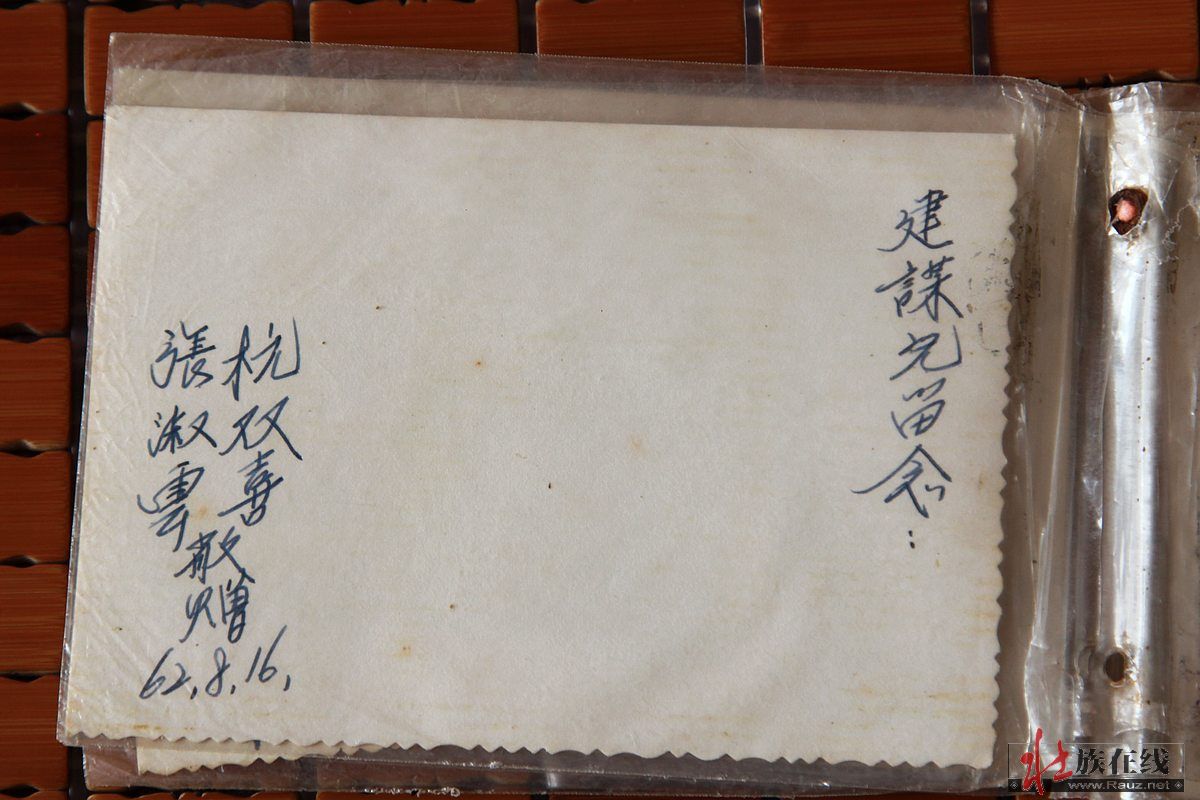 建謀兄留念：
杭双喜
張淑雲
敬赠
62.8.16.
壮族在线
www.Rauz.net